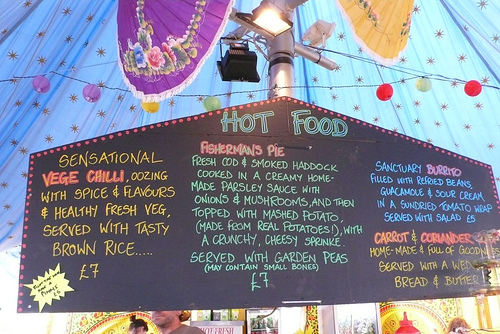 HOT FOOD
SENSATIONAL
VEGE CHILLI, OOZING
WITH SPICE & FLAVOURS
& HEALTHY FRESH VEG,
SERVED WITH TASTY
BROWN RICE.....
£7
FISHERMANS PIE
FRESH COD & SMOKED HADDOCK
COOKED IN A CREAMY HOME-
MADE PARSLEY SAUCE WITH
ONIONS & MUSHROOMS, AND THEN
TOPPED WITH MASHED POTATO,
(MADE FROM REAL POTATOES!), WITH
A CRUNCHY, CHEESY SPRINKE.
SERVED WITH GARDEN PEAS
(MAY CONTAIN SMALL BONES)
£7
SANCTUARY BURRITO
FILLED WITH REFRIED BEANS,
GUACAMOLE & SOUR CREAM,
IN A SUNDRIED TOMATO WRAP
SERVED WITH SALAD £5
CARROT & CORIANDER
HOME-MADE & FULL OF GOODN
SERVED WITH A WED
BREAD & BUTTER
HOT FRESH